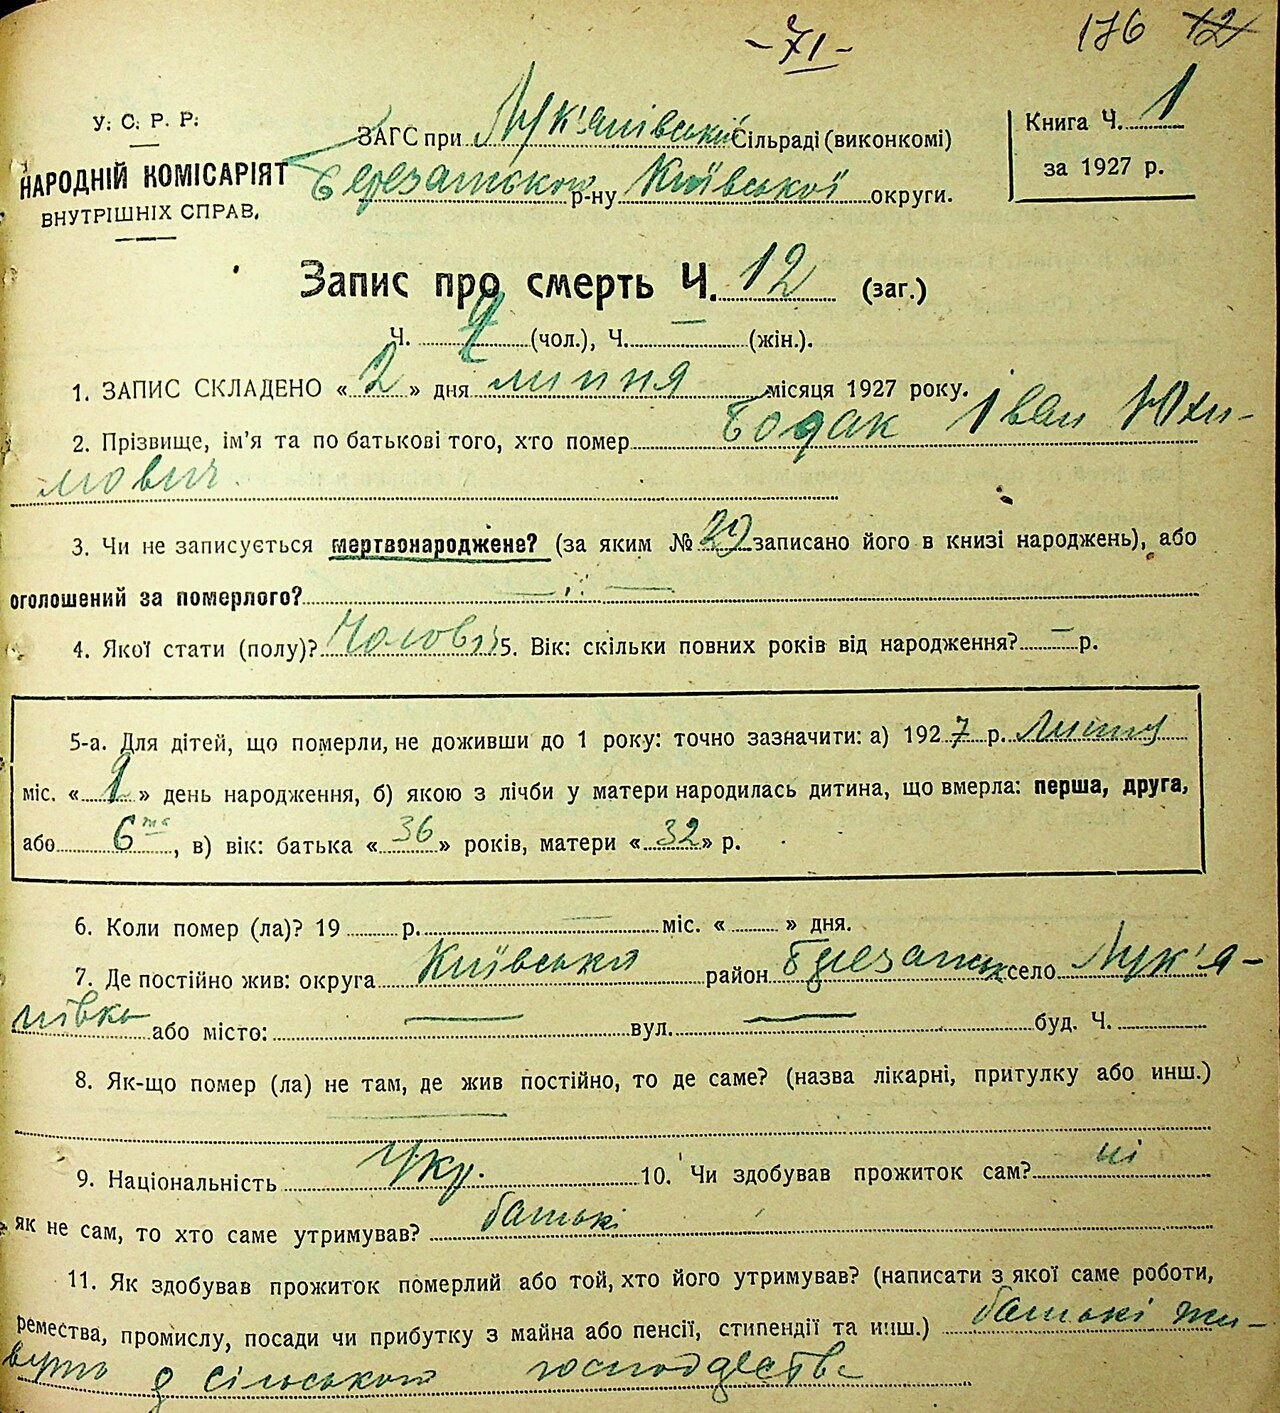 -71- 176 12
У. С. Р. Р.
НАРОДНІЙ КОМІСАРІЯТ
ВНУТРІШНІХ СПРАВ.
ЗАГС при Лук'янівській Сільраді (виконкомі)
Березанського р-ну Київської округи.
Книга Ч. 1
за 1927 р.
Запис про смерть Ч. 12 (заг.)
Ч. (чол.), Ч. — (жін.).
1. ЗАПИС СКЛАДЕНО «2» дня липня місяця 1927 року.
2. Прізвище, ім'я та по батькові того, хто помер Бодак Іван Юхи-
мович.
3. Чи не записується мертвонароджене? (за яким № 29 записано його в книзі народжень), або
оголошений за померлого? — " —
4. Якої стати (полу)? Чоловіч 5. Вік: скільки повних років від народження? — р.
5-а. Для дітей, що померли, не доживши до 1 року: точно зазначити: а) 1927 р. Липня
міс. «1» день народження, б) якою з лічби у матери народилась дитина, що вмерла: перша, друга,
або 6та, в) вік: батька «36» років, матери «32» р.
6. Коли помер (ла)? 19 р. — міс. « » дня.
7. Де постійно жив: округа Київська район Березанськ село Лук'я-
нівка або місто: — вул. — буд. Ч.
8. Як-що помер (ла) не там, де жив постійно, то де саме? (назва лікарні, притулку або инш.)
—
9. Національність Укр. 10. Чи здобував прожиток сам? ні
як не сам, то хто саме утримував? батькі
11. Як здобував прожиток померлий або той, хто його утримував? (написати з якої саме роботи,
ремества, промислу, посади чи прибутку з майна або пенсії, стипендії та инш.) батькі жи-
вуть з сільського господарства